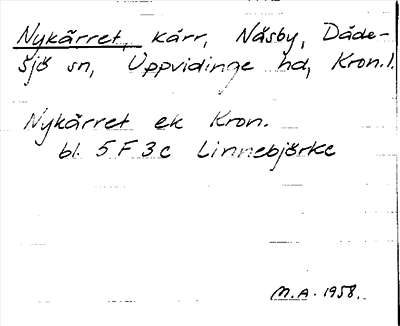 Nykärret, kärr, Näsby, Däde-
sjö sn, Uppvidinge hd, Kron.l.
Nykärret ek Kron.
bl. 5 F 3 c Linnebjörke
M.A. 1958.